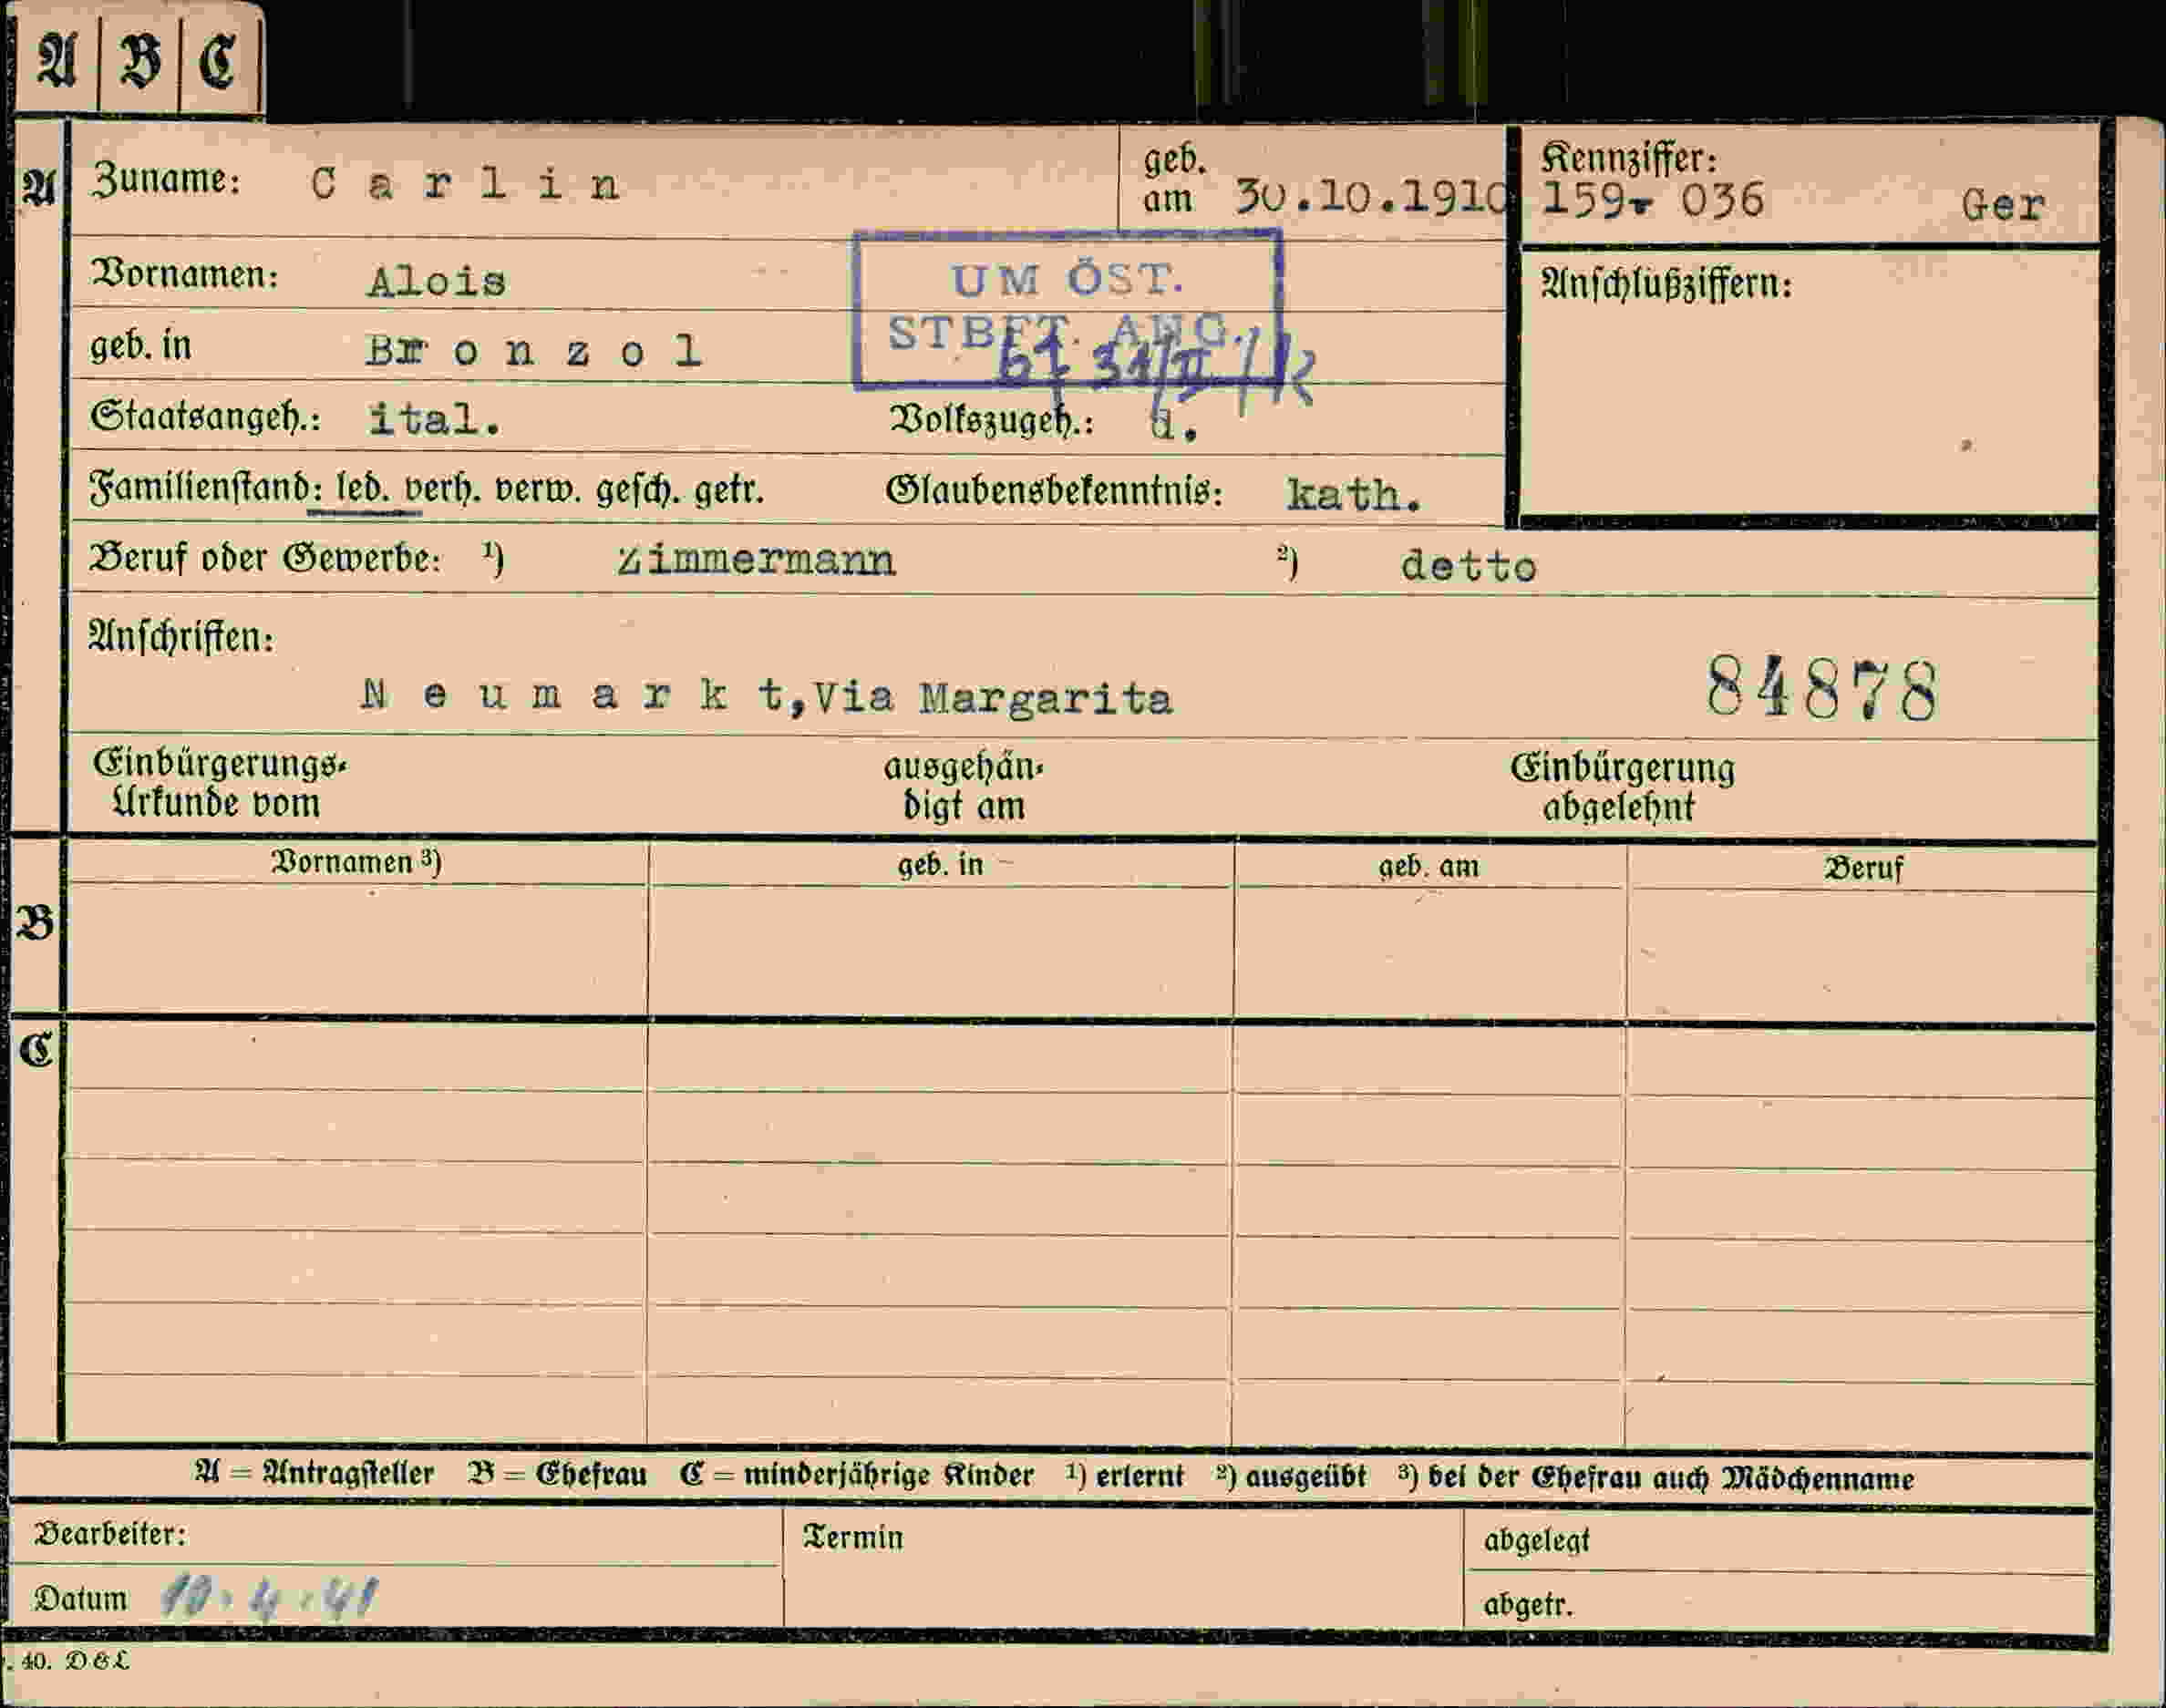 A B C
A Zuname: Carlin geb. am 30.10.1910 Kennziffer: 159- 036 Ger
Vornamen: Alois UM ÖST. Anschlußziffern:
geb. in Bronzol STBFT. ANG.
Staatsangeh.: ital. Volkszugeh.: d.
Familienstand: led. verh. verw. gesch. getr. Glaubensbekenntnis: kath.
Beruf oder Gewerbe: 1) Zimmermann 2) detto
Anschriften:
Neumarkt, Via Margarita 84878
Einbürgerungs- ausgehän- Einbürgerung
Urkunde vom digt am abgelehnt
Vornamen 3) geb. in geb. am Beruf
B
C
A = Antragsteller B = Ehefrau C = minderjährige Kinder 1) erlernt 2) ausgeübt 3) bei der Ehefrau auch Mädchenname
Bearbeiter: Termin abgelegt
Datum abgetr.
. 40. D & L